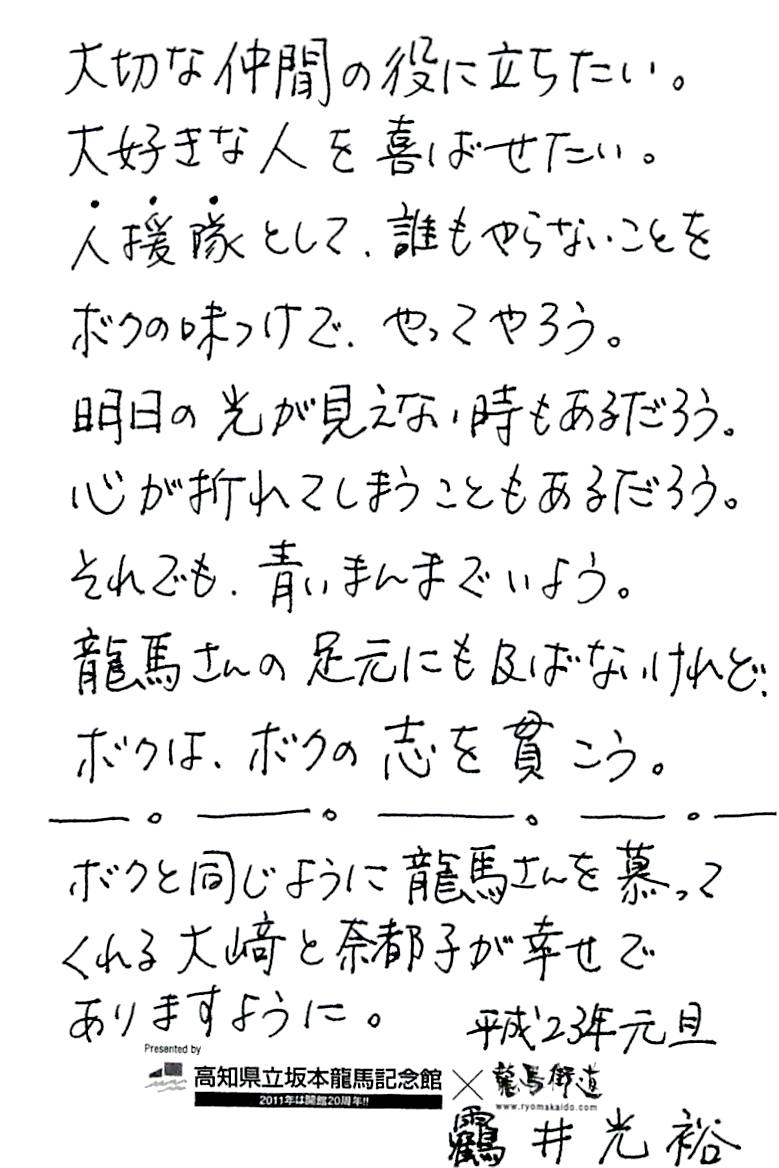 大切な仲間の役に立ちたい。
大好きな人を喜ばせたい。
人援隊として、誰もやらないことを
ボクの味つけで、やってやろう。
明日の光が見えない時もあるだろう。
心が折れてしまうこともあるだろう。
それでも、青いまんまでいよう。
龍馬さんの足元にも及ばないけれど、
ボクは、ボクの志を貫こう。
ボクと同じように龍馬さんを慕って
くれる大﨑と奈都子が幸せで
ありますように。
平成23年元旦
Presented by
高知県立坂本龍馬記念館×龍馬街道
2011年は開館20周年!!
www.ryomakaido.com
靍井光裕